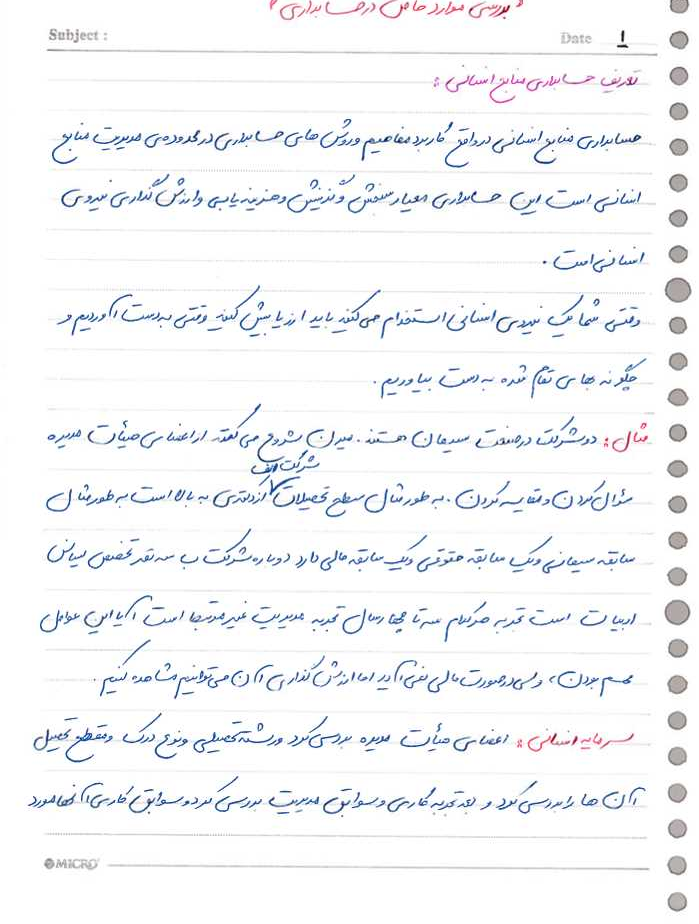 "بررسی موارد خاص در حسابداری"
Subject :
Date 1
تعریف حسابداری منابع انسانی :
حسابداری منابع انسانی در واقع کاربرد مفاهیم و روش های حسابداری در محدوده‌ی مدیریت منابع
انسانی است این حسابداری معیار سنجش و گزینش و هزینه یابی و ارزش گذاری نیروی
انسانی است .
وقتی شما یک نیروی انسانی استخدام می کنید باید ارزیابیش کنید وقتی به دست آوردیم و
چگونه بهای تمام شده به دست بیاوریم .
مثال : دو شرکت در صنعت سیمان هستند . میدن شروع می کنند از اعضای هیأت مدیره
سؤال کردن و مقایسه کردن . به طور مثال سطح تحصیلات شرکت الف از دکتری به بالا است به طور مثال
سابقه سیمانی و یک سابقه حقوقی و یک سابقه مالی دارد دوباره شرکت ب سه نفر تخصص لیسانس
ادبیات است تجربه هر کدام سه تا چهار سال تجربه مدیریت غیر مرتبط است آیا این عوامل
مهم بودن ، ولی در صورت مالی نمی آید اما ارزش گذاری آن می توانیم مشاهده کنیم .
سرمایه انسانی : اعضای هیأت مدیره بررسی کرد و رشته تحصیلی و نوع مدرک و مقطع تحصیل
آن ها را بررسی کرد و بعد تجربه کاری و سوابق مدیریت بررسی کرد و سوابق کاری آنها مورد
MICRO